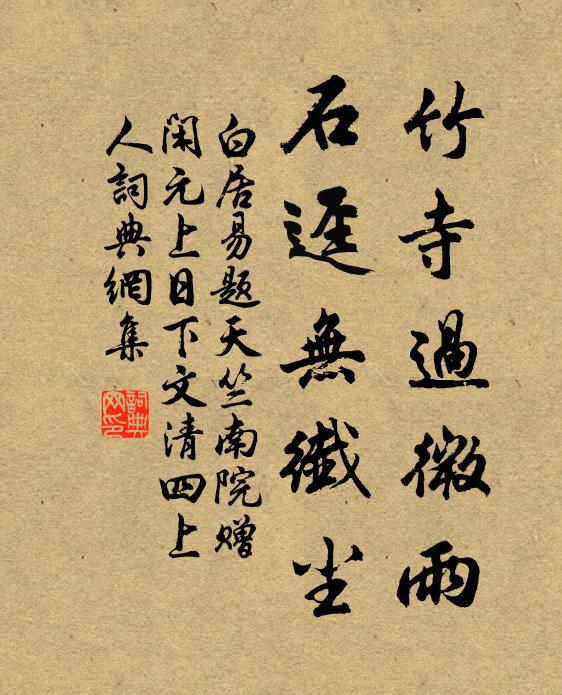 竹寺過微雨
石逕無纖尘
白居易題天竺南院赠
閑元上日下文清四上
人詞典網集
詞典
网印